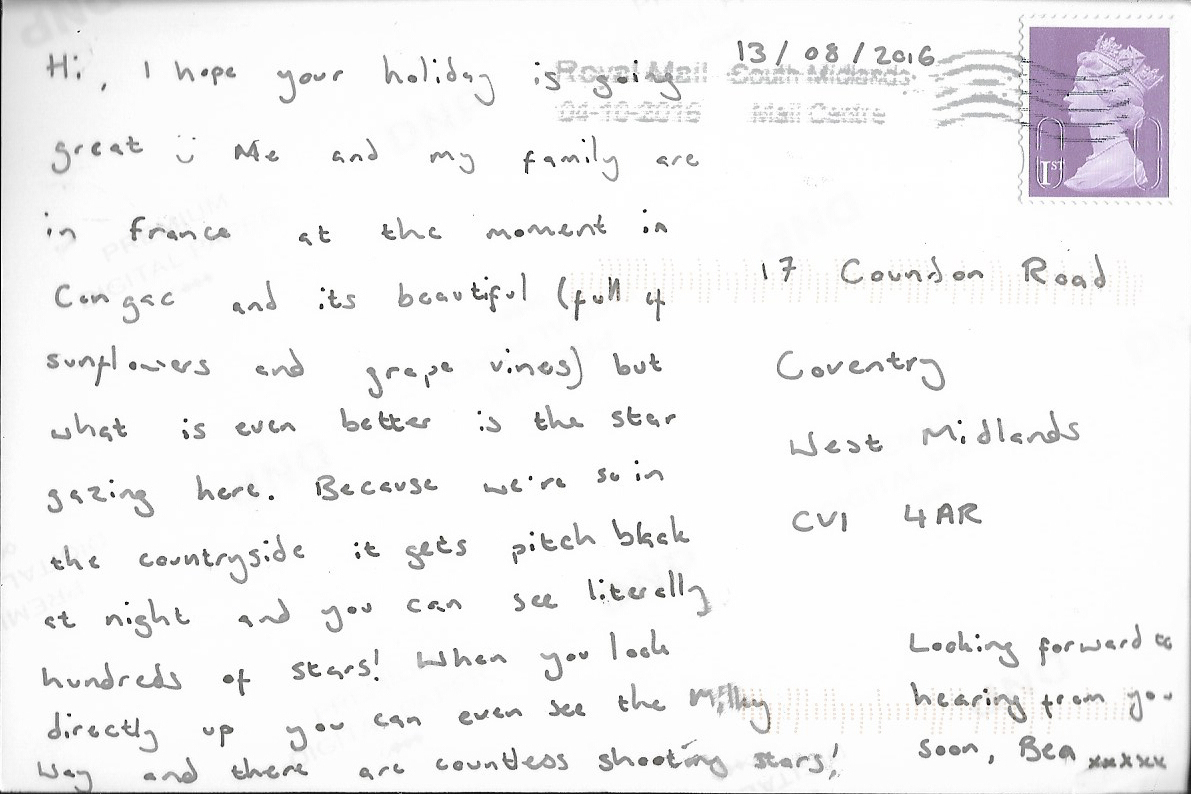 Hi, I hope your holiday is going
great :) Me and my family are
in france at the moment in
Congac and its beautiful (full of
sunflowers and grape vines) but
what is even better is the star
gazing here. Because we're so in
the countryside it gets pitch black
at night and you can see literally
hundreds of stars! When you look
directly up you can even see the Milky
Way and there are countless shooting stars!
13/08/2016
Royal Mail South Midlands
04-10-2016 Mail Centre
1ST
17 Coundon Road
Coventry
West Midlands
CV1 4AR
Looking forward to
hearing from you
soon, Bea xxxxxx